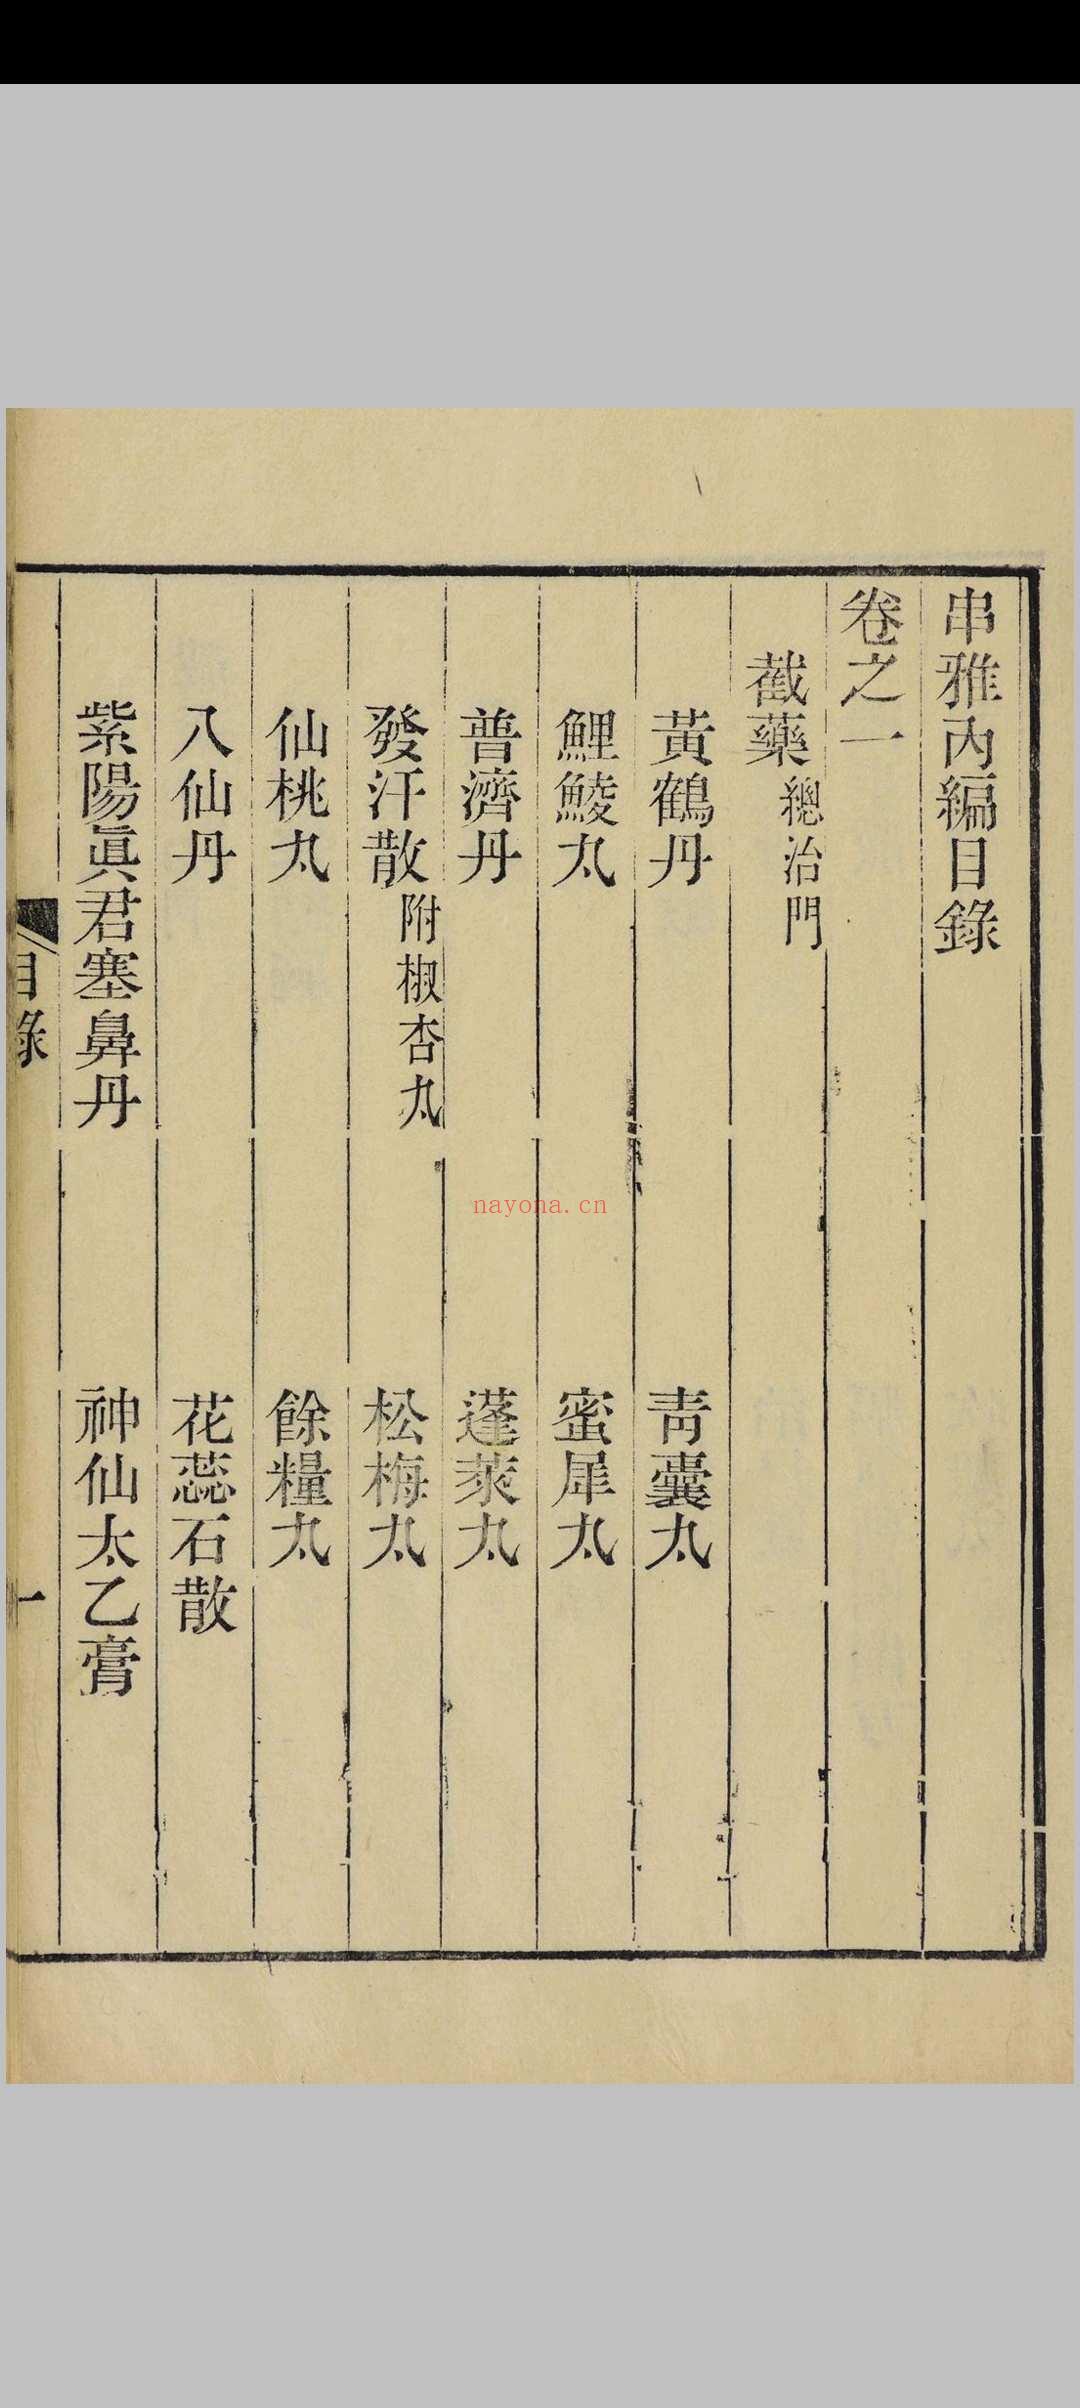 串雅內編目錄
卷之一
截藥總治門
黃鶴丹
青囊丸
鯉鯪丸
蜜犀丸
普濟丹
蓬萊丸
發汗散附椒杏丸
松梅丸
仙桃丸
餘糧丸
八仙丹
花蕊石散
紫陽眞君塞鼻丹
神仙太乙膏
目錄
一
nayona.cn